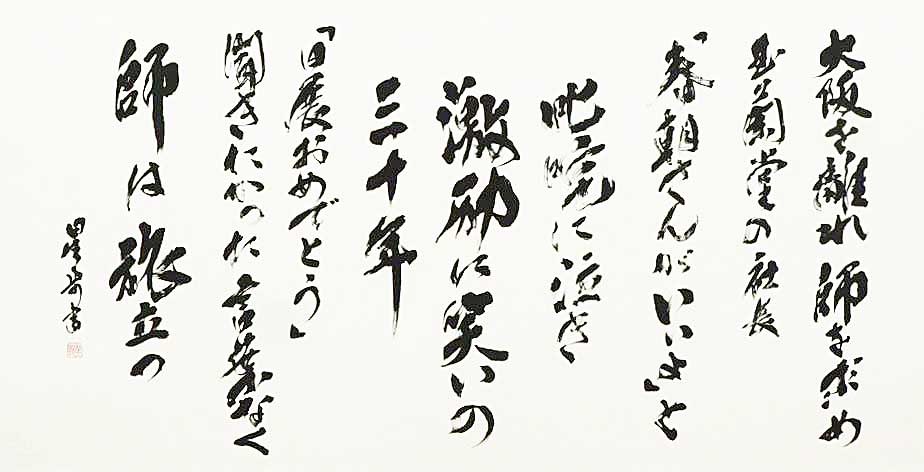 大阪を離れ 師を求め
玉蘭堂の社長
「春朝さんがいいよ」と
叱咤に泣き
激励に笑いの
三十年
「日展おめでとう」
聞きたかった言葉なく
師は旅立つ
書